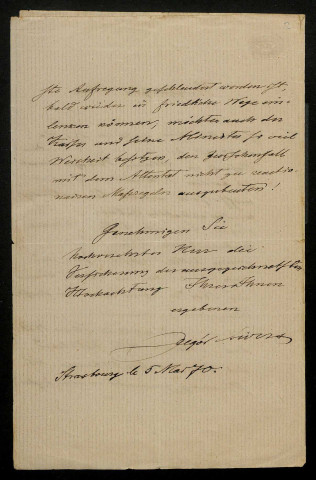 ste Aufregung geschleudert worden ist,
bald wieder in friedliche Wege ein-
lenken können, möchten auch der
Kaiser und seine Minister so viel
Weisheit besitzen, den
mit dem Attentat nicht zu reactio-
nären Maßregeln auszubeuten!
Genehmigen Sie
hochverehrter Herr die
Versicherung der ausgezeichnetsten
Hochachtung Ihres Ihnen
ergebenen
Strasbourg le 5 Mai 70.